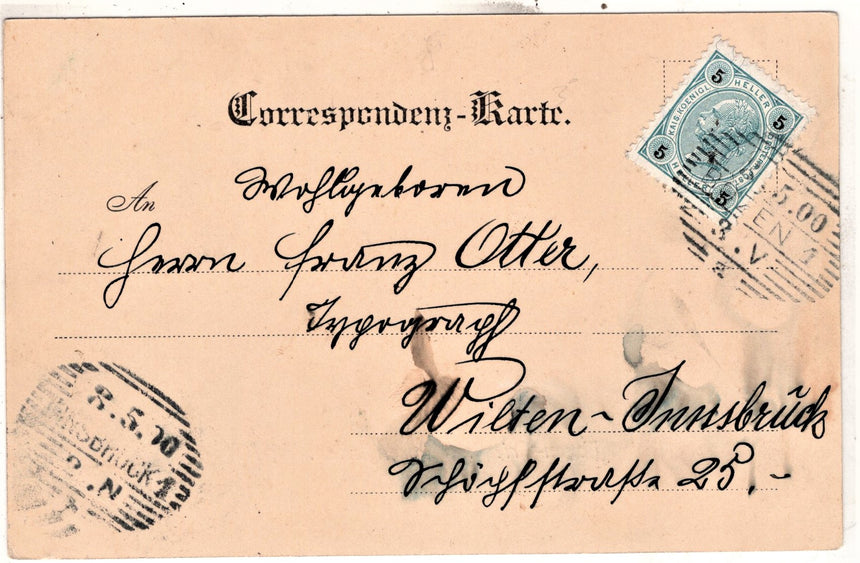 Correspondenz-Karte.
An
Wohlgeboren
Herrn Franz Otter,
Typograph
Wilten-Innsbruck
Schöpfstraße 25.-
5
5
5
5
KAIS. KOENIGL.
HELLER
HELLER
5.00
3.V
8.5.00
INNSBRUCK 1
N